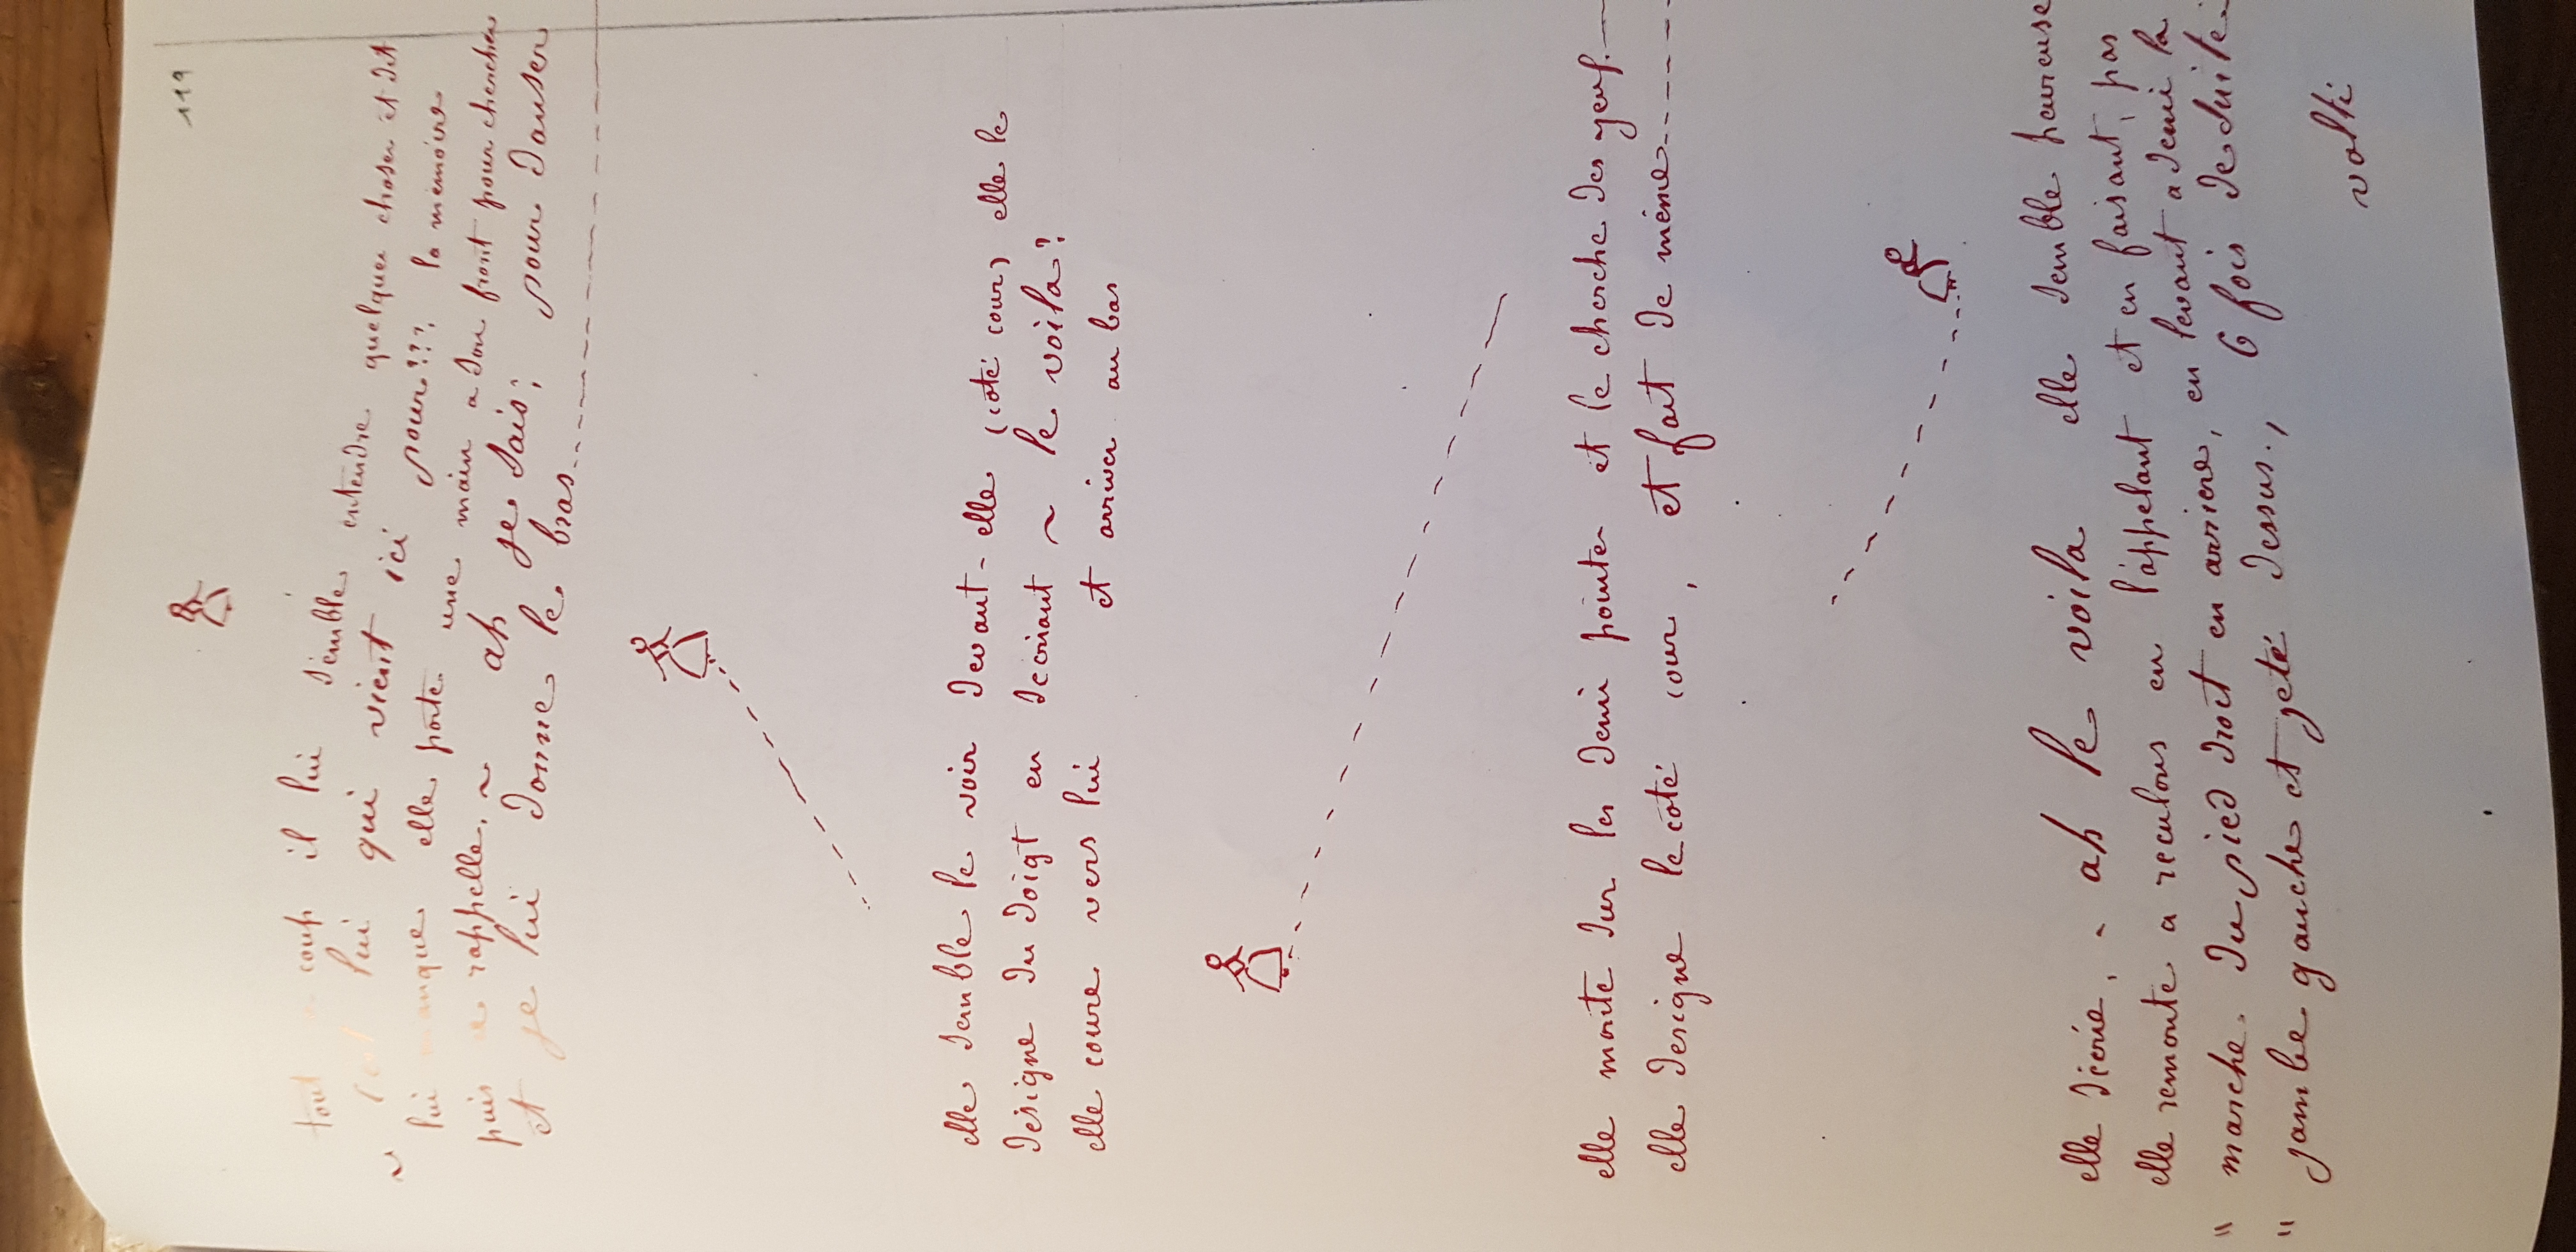 119
tout a coup il lui semble entendre quelque chose et dit
~ c'est lui qui vient ici pour???, la mémoire
lui manque elle porte une main a son front pour chercher
puis se rappelle. ~ ah je sais; pour danser
et je lui donne le bras..----------
elle semble le voir devant-elle (coté cour) elle le
désigne du doigt en secriant ~ le voila?
elle coure vers lui et arrive au bas
elle monte sur les demi pointes et le cherche des yeux.—
elle designe le coté cour, et fait de même-----
elle sécrie, ~ ah le voila elle semble heureuse
elle remonte a reculons en l'appelant et en faisant, pas
" marche. du pied droit en arriere, en levant a demi la
" jambe gauche et jeté dessus., 6 fois de suite
volti